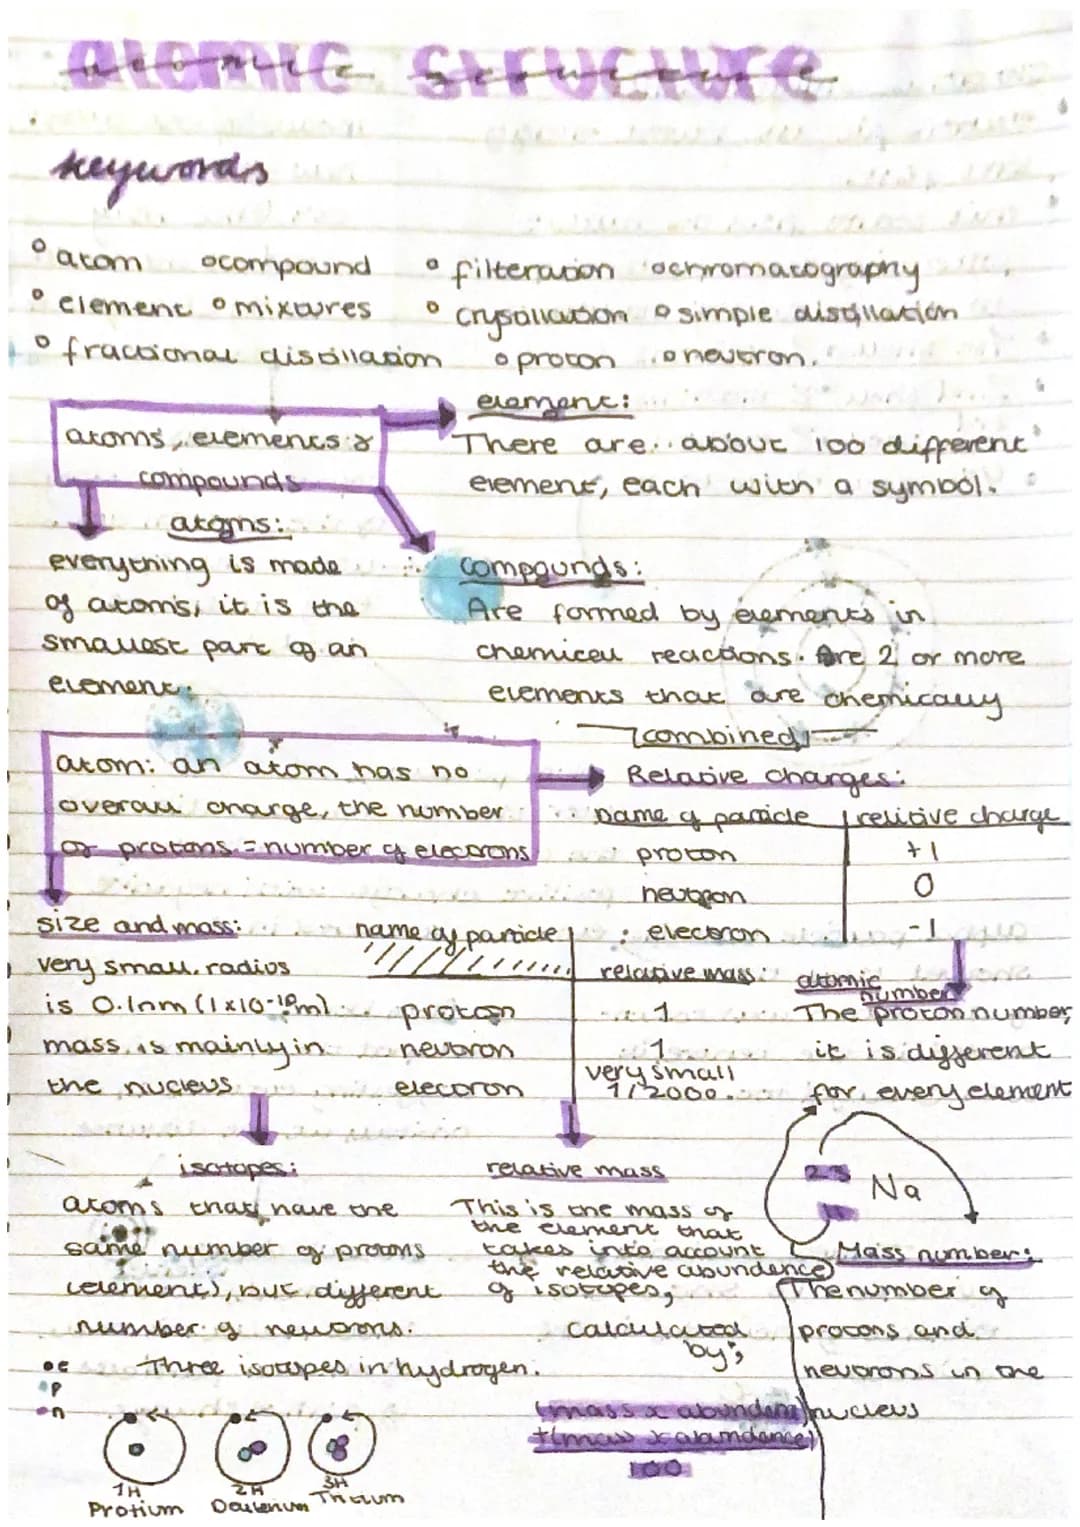 atomic structure
keywords
° atom o compound ° filteration o chromatography
° element o mixtures ° crysallation o simple distillation
° fractional distillation o proton o neutron.
atoms, elements &
compounds
element:
There are about 100 different
element, each with a symbol.
atoms:
everything is made
of atoms, it is the
smallest part of an
element.
compounds:
Are formed by elements in
chemical reactions. Are 2 or more
elements that are chemically
combined
atom: an atom has no
overall charge, the number
of protons = number of electrons
Relative charges:
name of particle relitive charge
proton +1
neutron 0
electron -1
size and mass:
very small, radius
is 0.1nm (1x10-10m)
mass is mainly in
the nucleus
name of particle
relative mass:
proton 1
neutron 1
electron very small 1/2000.
atomic number
The proton number,
it is different
for every element
isotopes:
atoms that have the
same number of protons
(element), but different
number of neutrons.
Three isotopes in hydrogen.
relative mass
This is the mass of
the element that
takes into account
the relative abundence
of isotopes,
calculated
by;
(mass x abundant)
+(mass x abundance)
100
23
11
Na
Mass number:
The number of
protons and
neutrons in the
nucleus
e
p
n
1H
Protium
2H
Deuterium
3H
Tritium